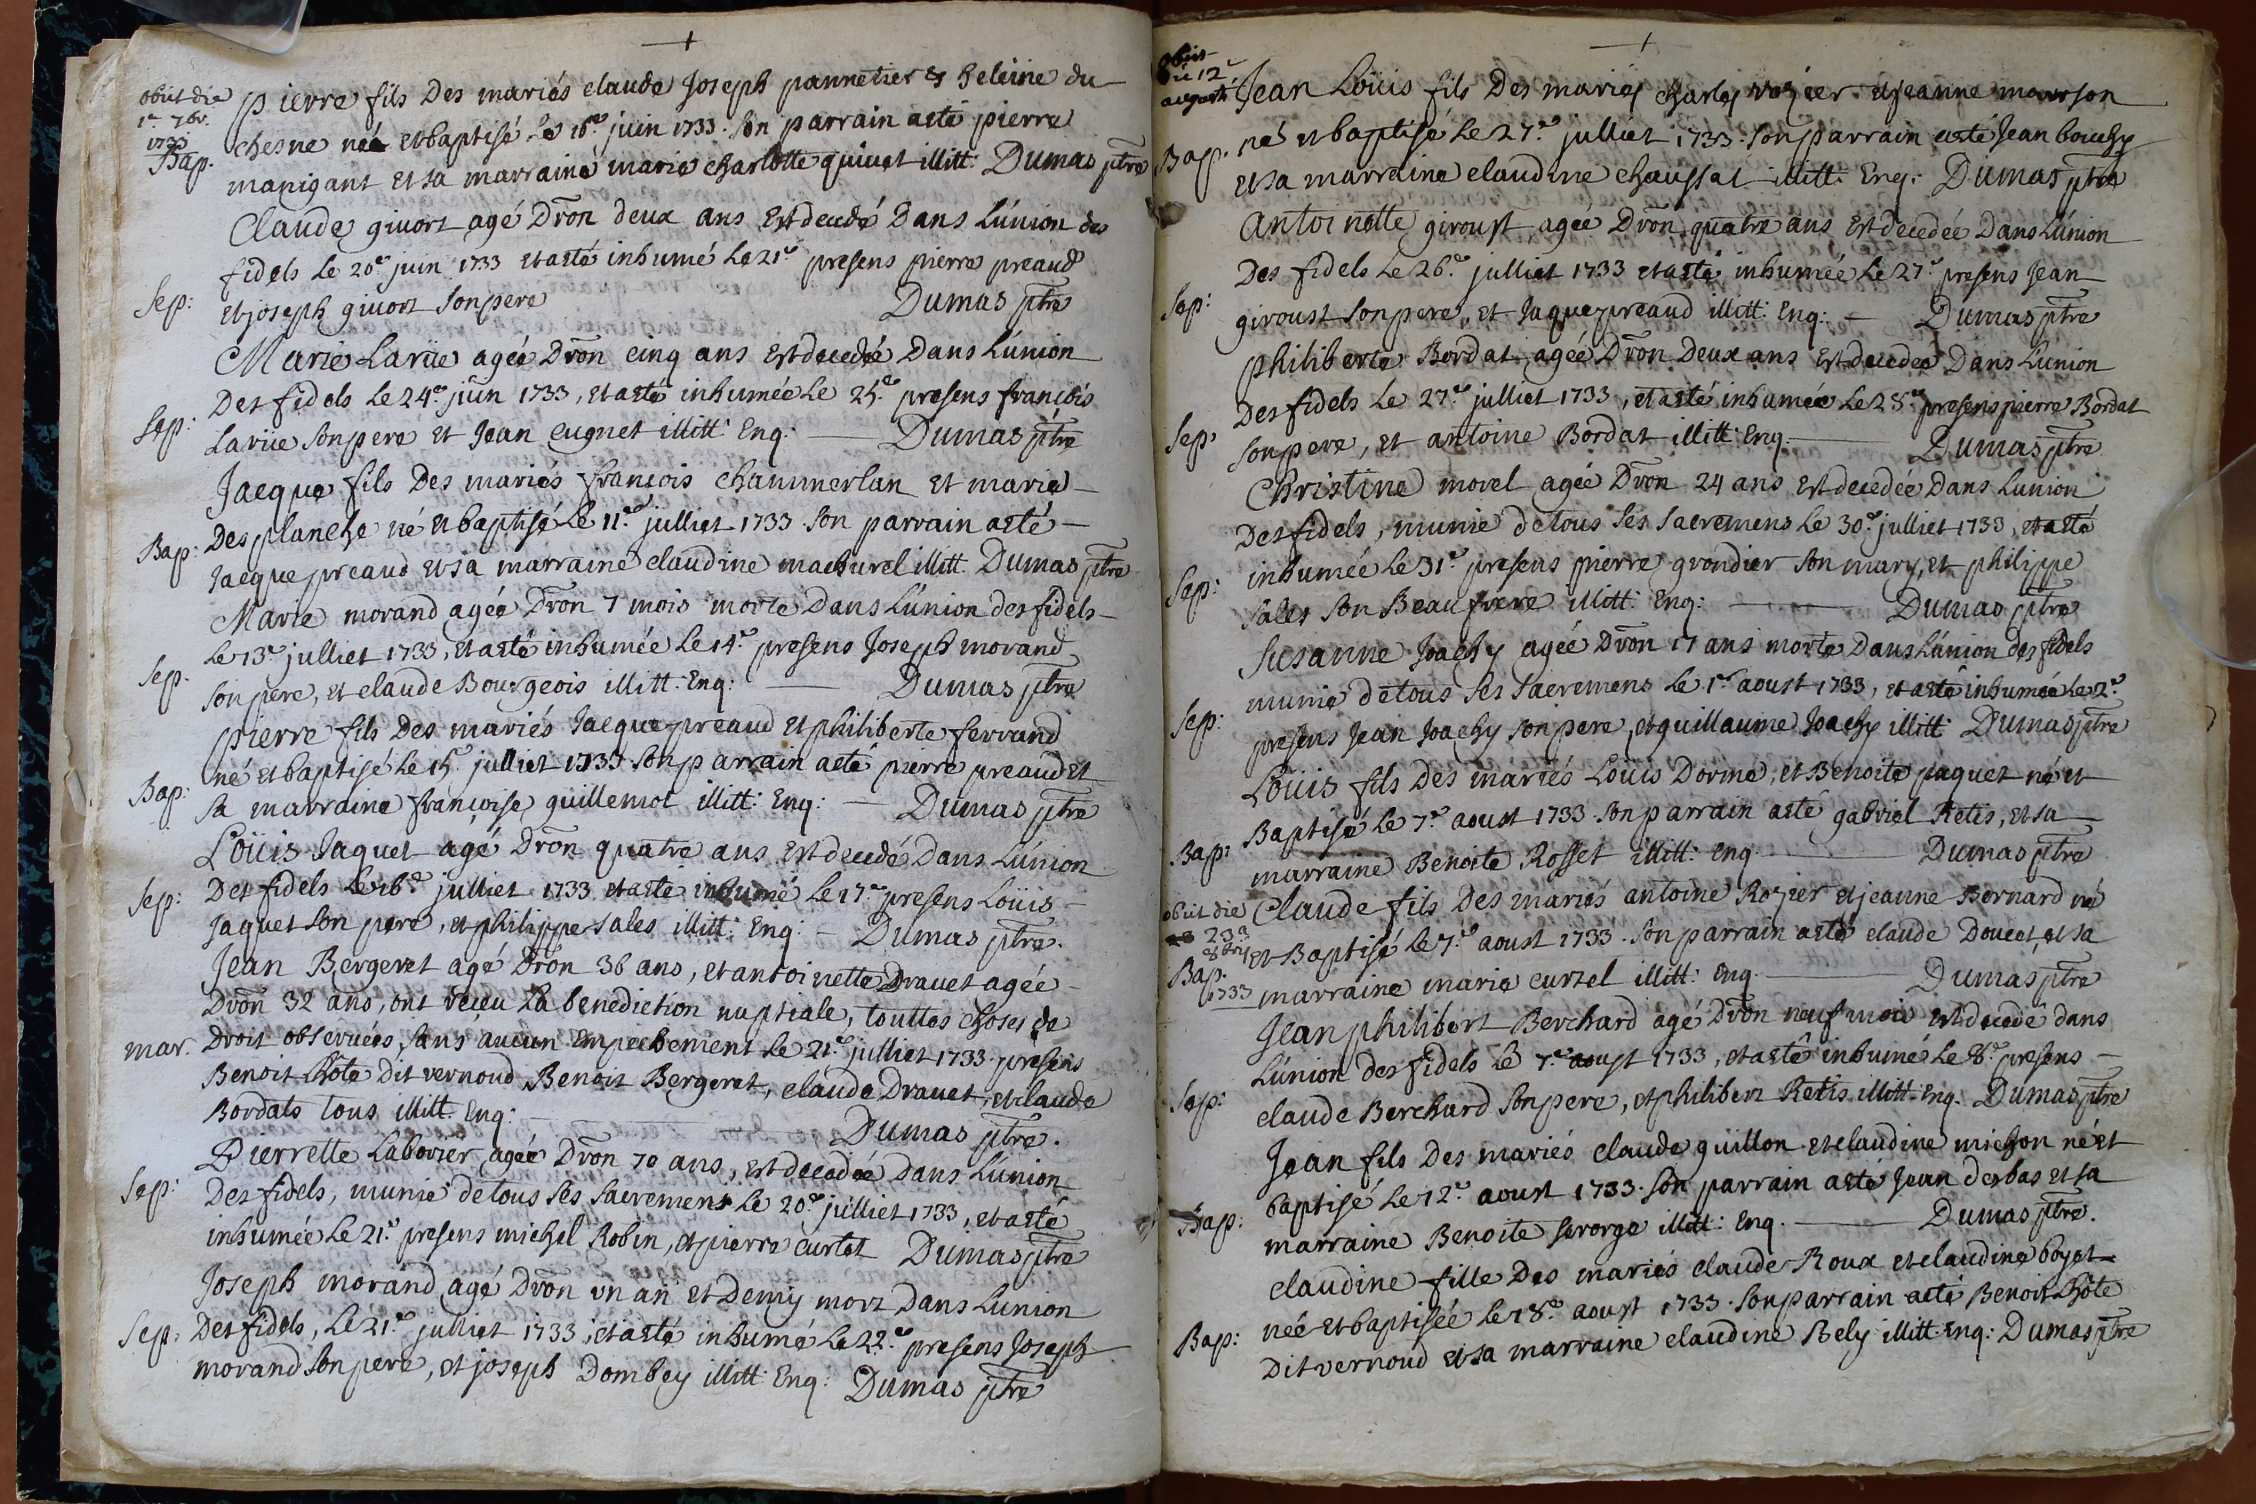 obiit die
1ª 7br.
1733
Bap.
pierre fils Des mariés claude Joseph pannetier & heleine du
chesne né et baptisé Le 16.e juin 1733. son parrain aesté pierre
manigant et sa marraine marie charlotte quivet illitt: Dumas ptre
Claude givort agé Dron deux ans Est decedé Dans L'union des
fidels Le 20.e juin 1733 et aesté inhumé Le 21.e presens pierre preaud
Sep:
et joseph givort son pere Dumas ptre
Marie Larüe agée Dron cinq ans Est decedée Dans L'union
Des fidels Le 24.e juin 1733, et aesté inhumée Le 25.e presens françois
Sep:
Larüe son pere et Jean cugnet illitt: Enq: Dumas ptre
Jacque fils Des mariés françois chammerlan et marie
Bap:
Desplanche né et baptisé Le 11.e julliet 1733. son parrain aesté
Jacque preaud et sa marraine claudine machurel illitt Dumas ptre
Marie morand agée Dron 7 mois morte Dans L'union des fidels
Le 13.e julliet 1733, et aesté inhumée Le 14.e presens Joseph morand
Sep.
son pere, et claude Bourgeois illitt: Enq: Dumas ptre
pierre fils Des mariés Jacque preaud et philiberte ferrand
né et baptisé Le 15.e julliet 1733 son parrain aesté pierre preaud et
Bap:
sa marraine françoise guillemot illitt: Enq: Dumas ptre
Loüis Jaquet agé Dron quatre ans Est decedé Dans L'union
Sep:
Des fidels Le 16.e julliet 1733 et aesté inhumé Le 17.e presens Loüis
Jaquet son pere, et philippe sales illitt: Enq: Dumas ptre.
Jean Bergeret agé Dron 36 ans, et antoinette Dravet agée
Dron 32 ans, ont receu La benediction nuptiale, touttes choses de
mar.
Droit observées, sans aucun Empechement Le 21.e julliet 1733. presens
Benoit Chôte dit vernoud, Benoit Bergeret, claude Dravet, et claude
Bordats tous illitt. Enq: Dumas ptre.
Pierrette Laborier agée Dron 70 ans, Est decedée Dans L'union
Sep:
Des fidels, munie de tous ses sacremens Le 20.e julliet 1733, et aesté
inhumée Le 21.e presens michel Robin, et pierre curtet Dumas ptre
Joseph morand agé Dron un an et Demy mort Dans L'union
Sep:
Des fidels, Le 21.e julliet 1733, et aesté inhumé Le 22.e presens Joseph
morand son pere, et joseph Dombey illitt: Enq: Dumas ptre
obiit
die 12ª
augusti
Jean Loüis fils Des mariés charles rozier et jeanne mourson
Bap.
né et baptisé Le 27.e julliet 1733. son parrain aesté Jean bouchy
et sa marraine claudine chaussat illitt: Enq: Dumas ptre
Antoinette giroust agée Dron quatre ans Est decedée Dans L'union
Des fidels Le 26.e julliet 1733 et aesté inhumée Le 27.e presens Jean
Sep:
giroust son pere, et Jaque preaud illitt: Enq: Dumas ptre
philiberte Bordat agée Dron Deux ans Est decedée Dans L'union
Des fidels Le 27.e julliet 1733, et aesté inhumée Le 28.e presens pierre Bordat
Sep:
son pere, et antoine Bordat illitt: Enq. Dumas ptre
Christine morel agée Dron 24 ans Est decedée Dans L'union
Des fidels, munie de tous ses sacremens Le 30.e julliet 1733, et aesté
Sep:
inhumée Le 31.e presens pierre grondier son mary, et philippe
Sales son Beau frere illitt: Enq: Dumas ptre
Susanne Joachy agée Dron 17 ans morte Dans L'union des fidels
munie de tous ses sacremens Le 1.er aoust 1733, et aesté inhumée Le 2.e
Sep:
presens Jean Joachy son pere, et guillaume Joachy illitt: Dumas ptre
Loüis fils Des mariés Loüis Dorme, et Benoite paquet né et
Baptisé Le 7.e aoust 1733. son parrain aesté gabriel Retis, et sa
Bap:
marraine Benoite Rosset illitt: Enq. Dumas ptre
obiit die
23ª
8bris
Bap.
1733
Claude fils Des mariés antoine Rozier et jeanne Bernard né
et Baptisé Le 7.e aoust 1733. son parrain aesté claude Doucet, et sa
marraine marie curtel illitt: Enq. Dumas ptre
Jean philibert Berchard agé Dron neuf mois est decedé dans
L'union des fidels Le 7.e aoust 1733, et aesté inhumé Le 8.e presens
Sep:
claude Berchard son pere, et philibert Retis illitt: Enq. Dumas ptre
Jean fils Des mariés claude guillon et claudine michon né et
baptisé Le 12.e aoust 1733. son parrain aesté Jean desbas et sa
Bap:
marraine Benoite serorge illitt: Enq. Dumas ptre.
claudine fille Des mariés claude Roux et claudine boyet
née et baptisée Le 18.e aoust 1733. son parrain aesté Benoit Chôte
Bap:
Dit vernoud et sa marraine claudine Bely illitt: Enq: Dumas ptre